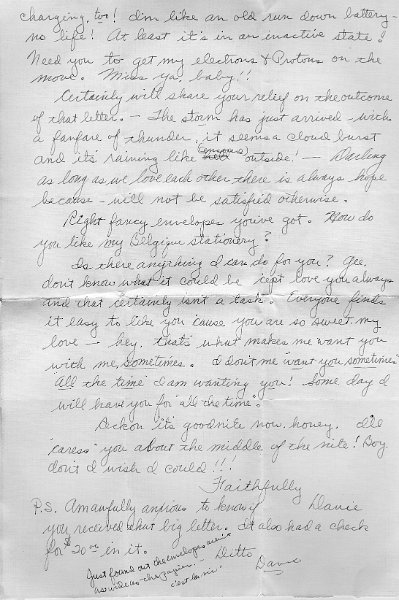 charging, too! I'm like an old run down battery-
no life! At least it's in an inactive state!
Need you to get my electrons & Protons on the
move. Miss ya, baby!!
Certainly will share your relief on the outcome
of that letter. - The storm has just arrived with
a fanfare of thunder, it seems a cloud burst
and it's raining like (censored) outside! - Darling
as long as we love each other there is always hope
because - will not be satisfied otherwise.
Right fancy envelopes you've got. How do
you like my Belgique stationery?
Is there anything I can do for you? Gee,
don't know what it could be 'cept love you always
and that certainly isn't a task. Everyone finds
it easy to like you 'cause you are so sweet my
love - hey, that's what makes me want you
with me, sometimes. I don't me "want you sometimes"
"All the time" I am wanting you! Some day I
will have you for "all the time".
Reckon it's goodnite now, honey. I'll
"caress" you about the middle of the nite! Boy
don't I wish I could!!!
Faithfully
Davie
P.S. Am awfully anxious to know if
you received that big letter. It also had a check
for $20.00 in it.
Ditto
Davie
Just found out the envelopes aren't
as wide as the papier. -
c'est la vie.